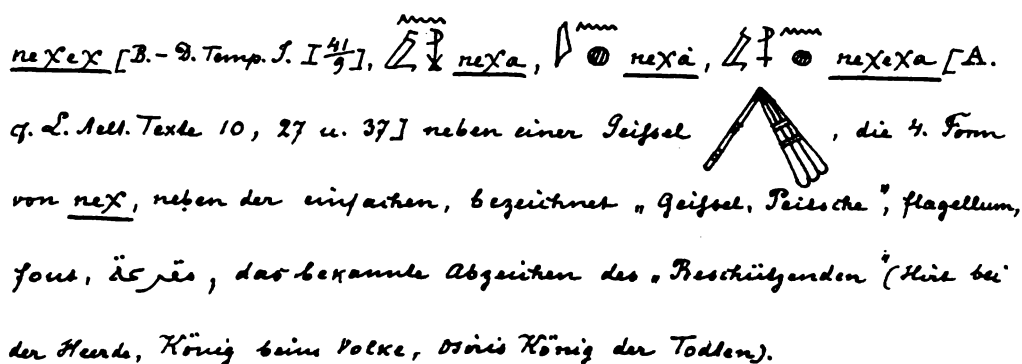 neχeχ [B.-D. Temp. I. I 41/9], neχa, neχȧ, neχeχa [A.
cf. L. Aelt. Texte 10, 27 u. 37] neben einer Geißel, die 4. Form
von neχ, neben der einfachen, bezeichnet „Geißel, Peitsche“, flagellum,
das bekannte Abzeichen des „Beschützenden“ (Hirt bei
der Heerde, König beim Volke, Osiris König der Todten).